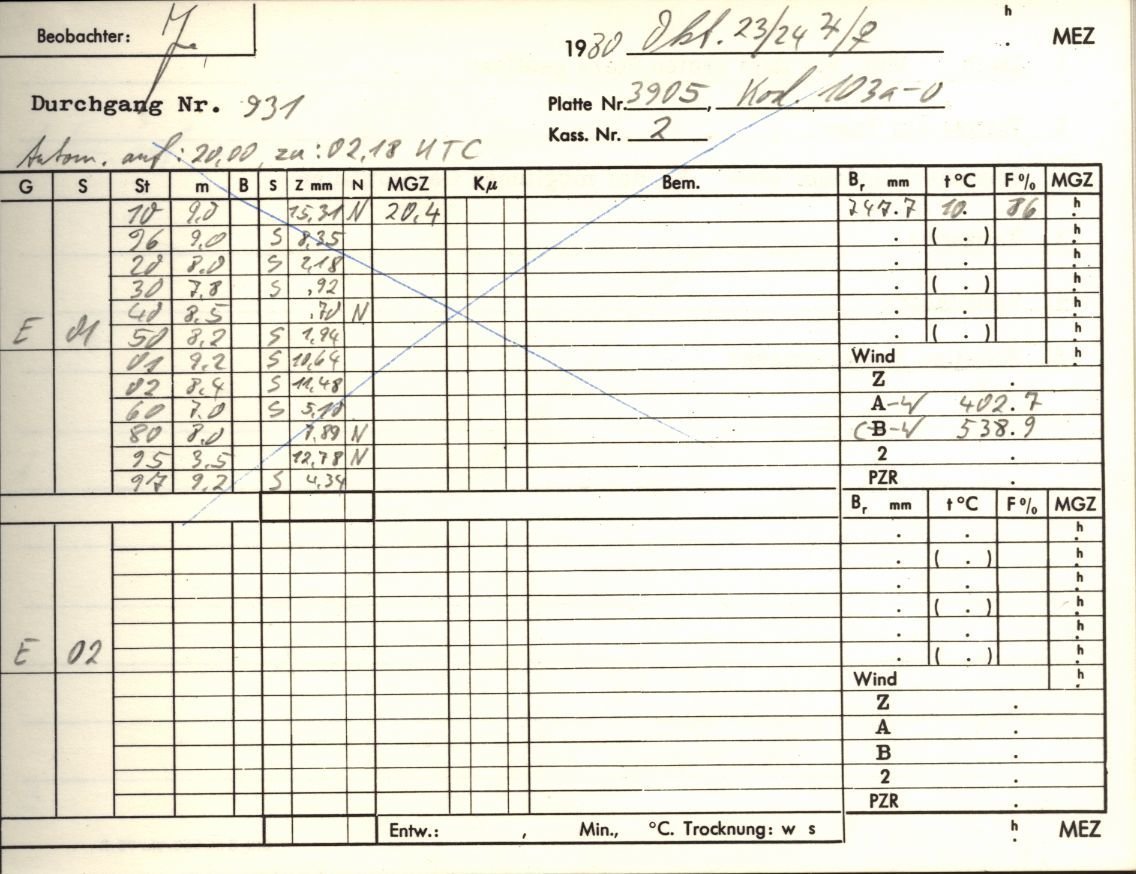 Beobachter:
1980 Okt. 23/24 ♃/♀ h . MEZ
Durchgang Nr. 931
Platte Nr. 3905, Kod 103a-0
Kass. Nr. 2
Autom. auf: 20,00, zu: 02,18 UTC
G S St m B S Z mm N MGZ Kμ Bem. Br mm t°C F% MGZ
10 9,0 15,31 N 20,4 747.7 10. 86 h
96 9,0 S 8,35 . ( . ) h
20 8,0 S 2,18 . . h
30 7,8 S ,92 . ( . ) h
40 8,5 ,70 N . . h
E 01 50 8,2 S 1,94 . ( . ) h
01 9,2 S 10,64 Wind h
02 8,4 S 11,48 Z .
60 7,0 S 5,10 A-W 402.7
80 8,0 7,89 N (B-W 538.9
95 3,5 12,78 N 2 .
97 9,2 S 4,34 PZR .
Br mm t°C F% MGZ
. . h
. ( . ) h
. . h
. ( . ) h
. . h
E 02 . ( . ) h
Wind h
Z .
A .
B .
2 .
PZR .
Entw.: , Min., °C. Trocknung: w s h . MEZ